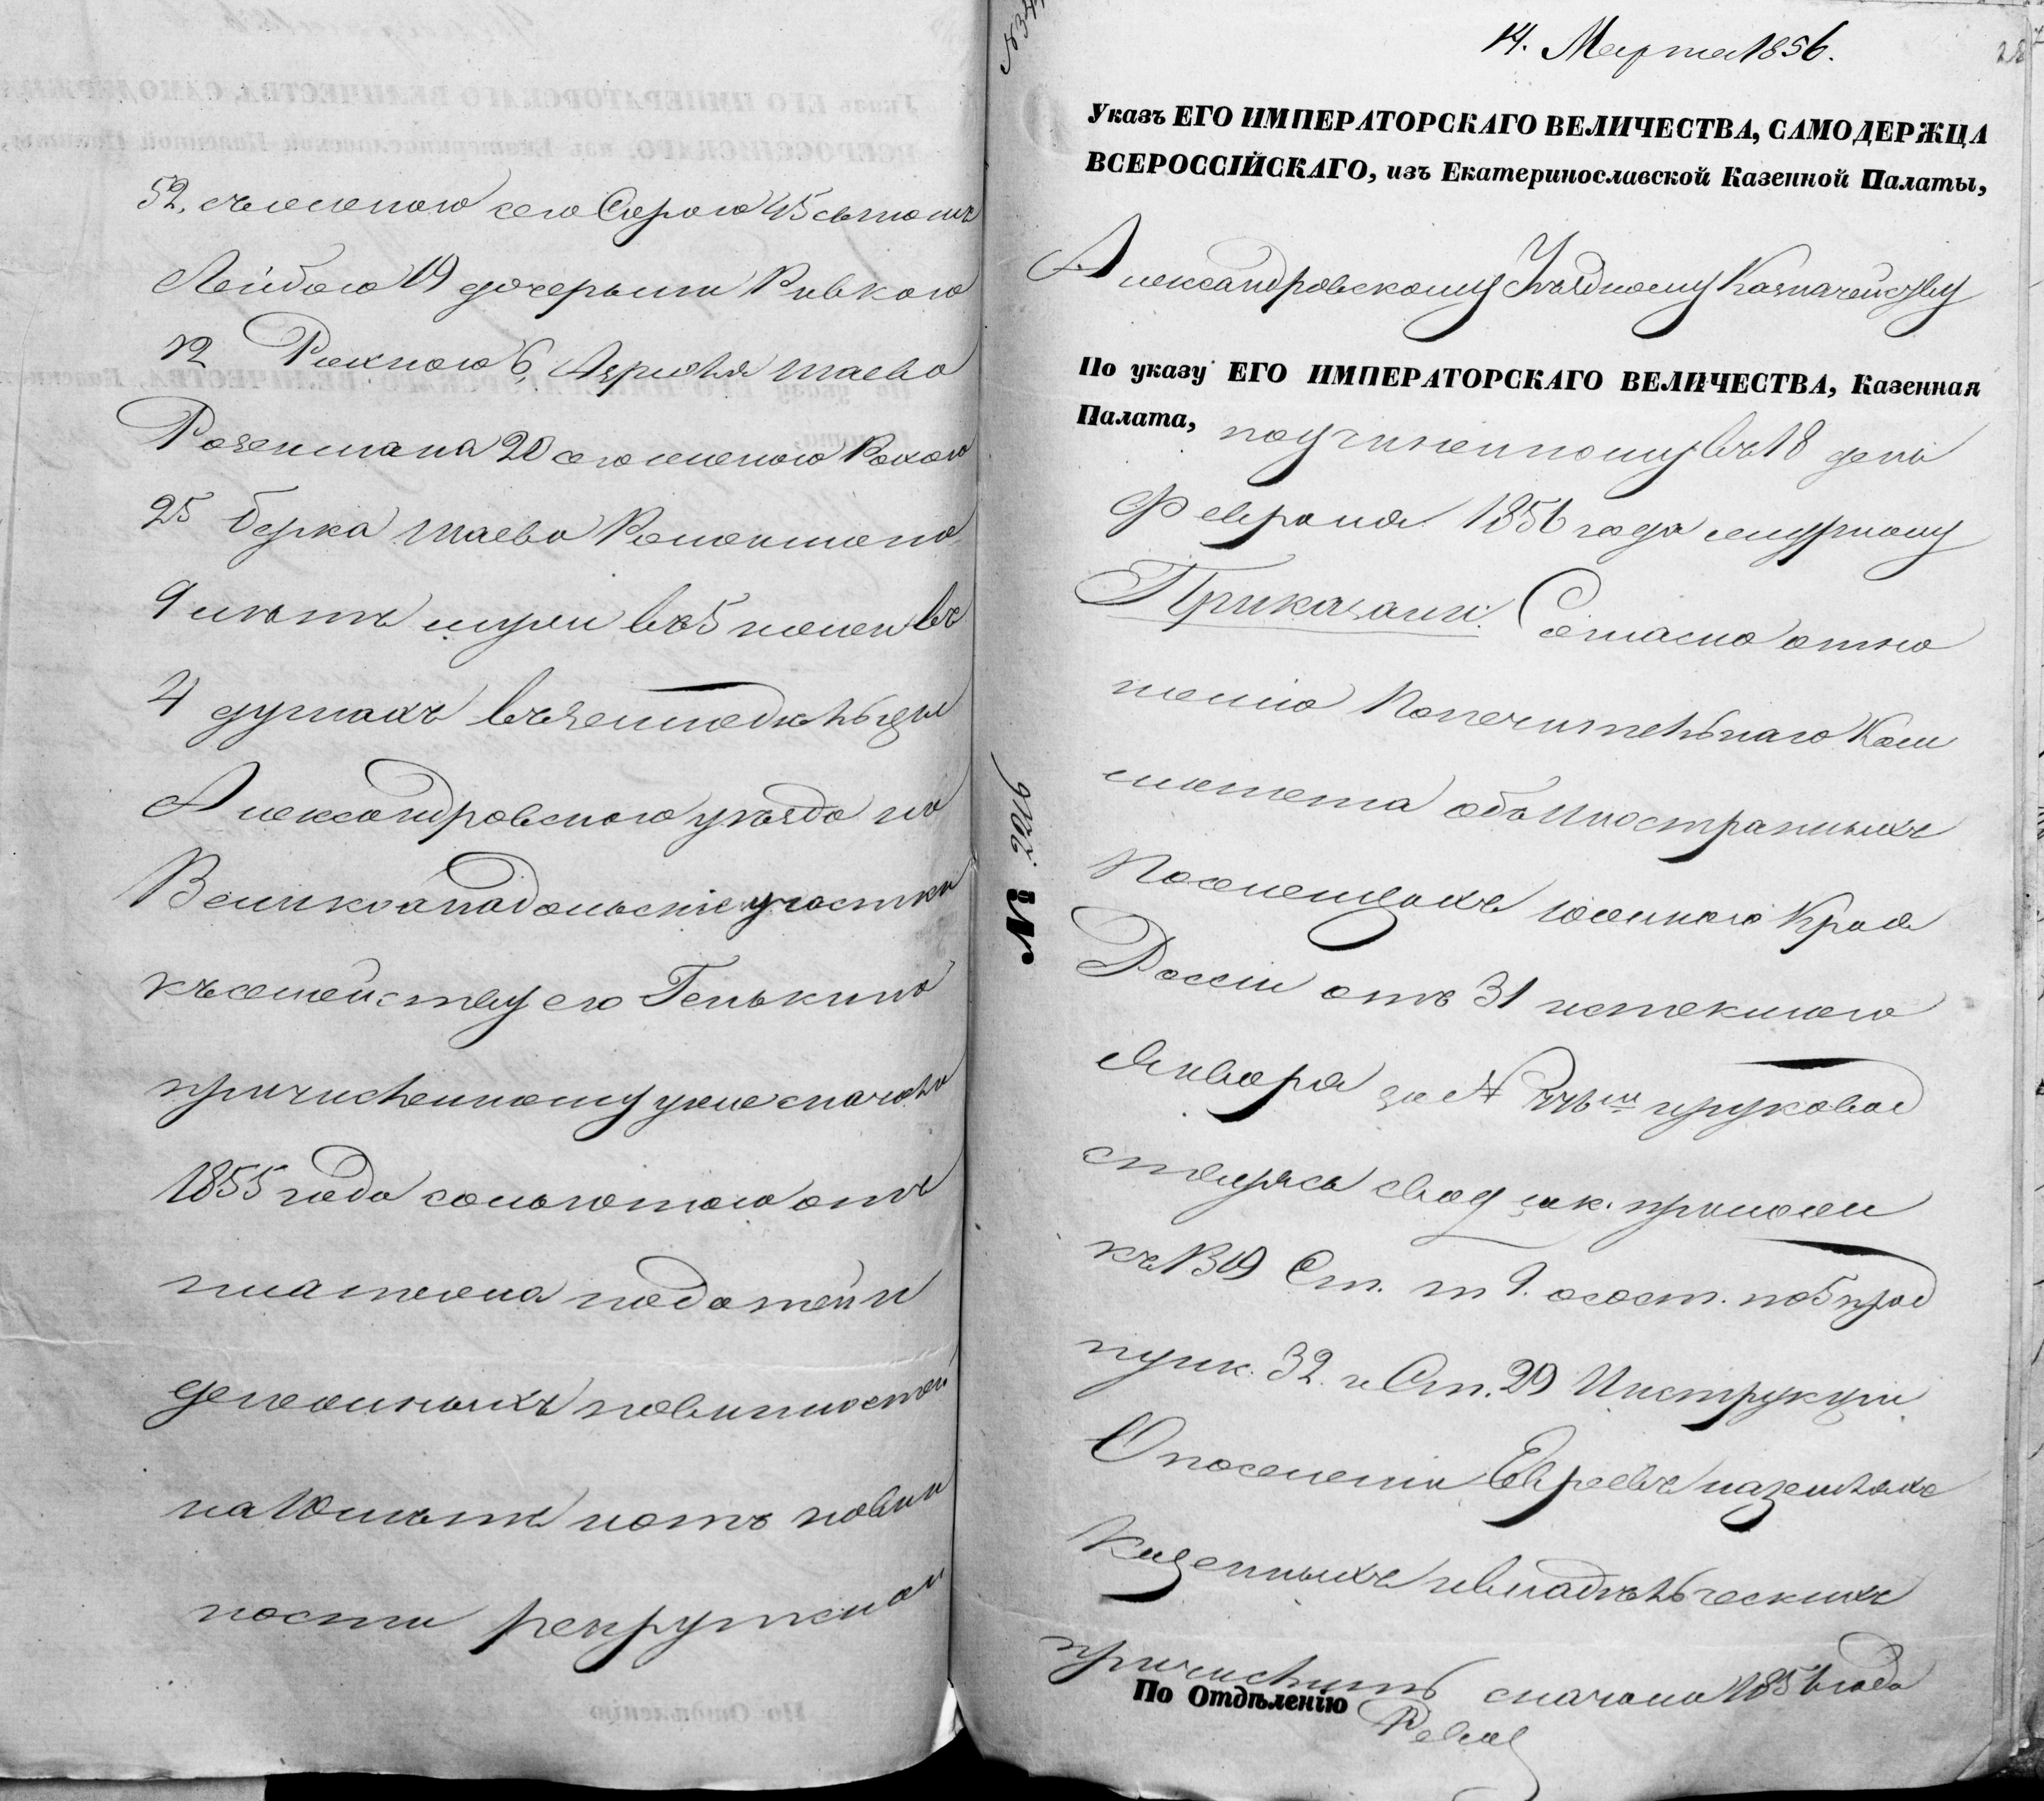 52, съ женою его Сорою 45 сыномъ
Лейбою 19 дочерьми Ривкою
12 Рехною 6, Азриеля Шаева
Розенмана 20 его женою Рохою
25 Берка Шаева Розенмана
9 лѣтъ муж. въ 5 женск. въ
4 душахъ въ земледѣльцы
Александровскаго уѣзда на
Великоанадольскіе участки
къ семейству его Генькина
причисленному уже сначала
1855 года со льготою отъ
платежа податей и
денежныхъ повинностей
на 10 лѣтъ и отъ повин
ности рекрутской
14. Марта 1856.
Указъ ЕГО ИМПЕРАТОРСКАГО ВЕЛИЧЕСТВА, САМОДЕРЖЦА
ВСЕРОССІЙСКАГО, изъ Екатеринославской Казенной Палаты,
Александровскому Уѣздному Казначейству
По указу ЕГО ИМПЕРАТОРСКАГО ВЕЛИЧЕСТВА, Казенная
Палата, по учиненному въ 18 день
Февраля 1856 года журналу
Приказали: Согласно отно
шенію Попечительнаго Ком
митета объ Иностранныхъ
Поселенцахъ южнаго Края
Россіи отъ 31 истекшаго
Января за № руковод
ствуясь свод. зак. прилож.
къ Ст. т 9. о сост. по 5 прод
пунк. 32. и Ст. 29 Инструкціи
О поселеніи Евреевъ на земляхъ
Казенныхъ и владѣльческихъ
причислить сначала 1856 года
По Отдѣленію
№ 2216